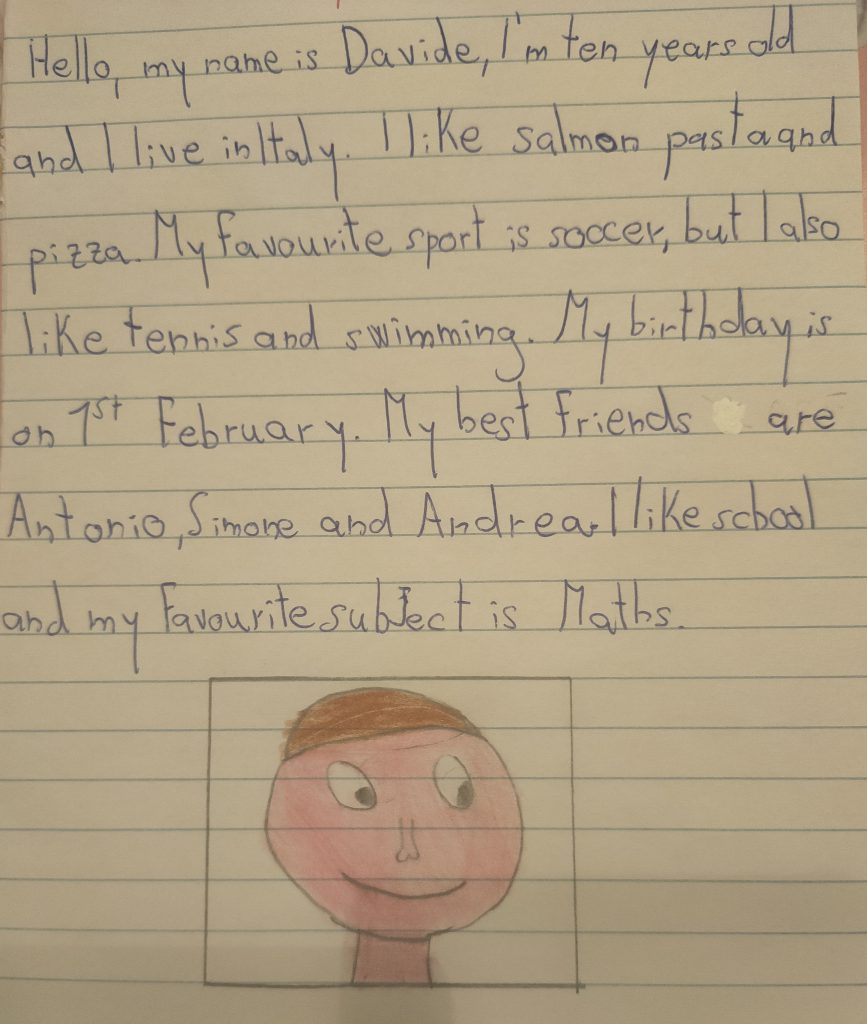 Hello, my name is Davide, I'm ten years old
and I live in Italy. I like salmon pasta and
pizza. My favourite sport is soccer, but I also
like tennis and swimming. My birthday is
on 1st February. My best friends are
Antonio, Simone and Andrea. I like school
and my favourite subject is Maths.